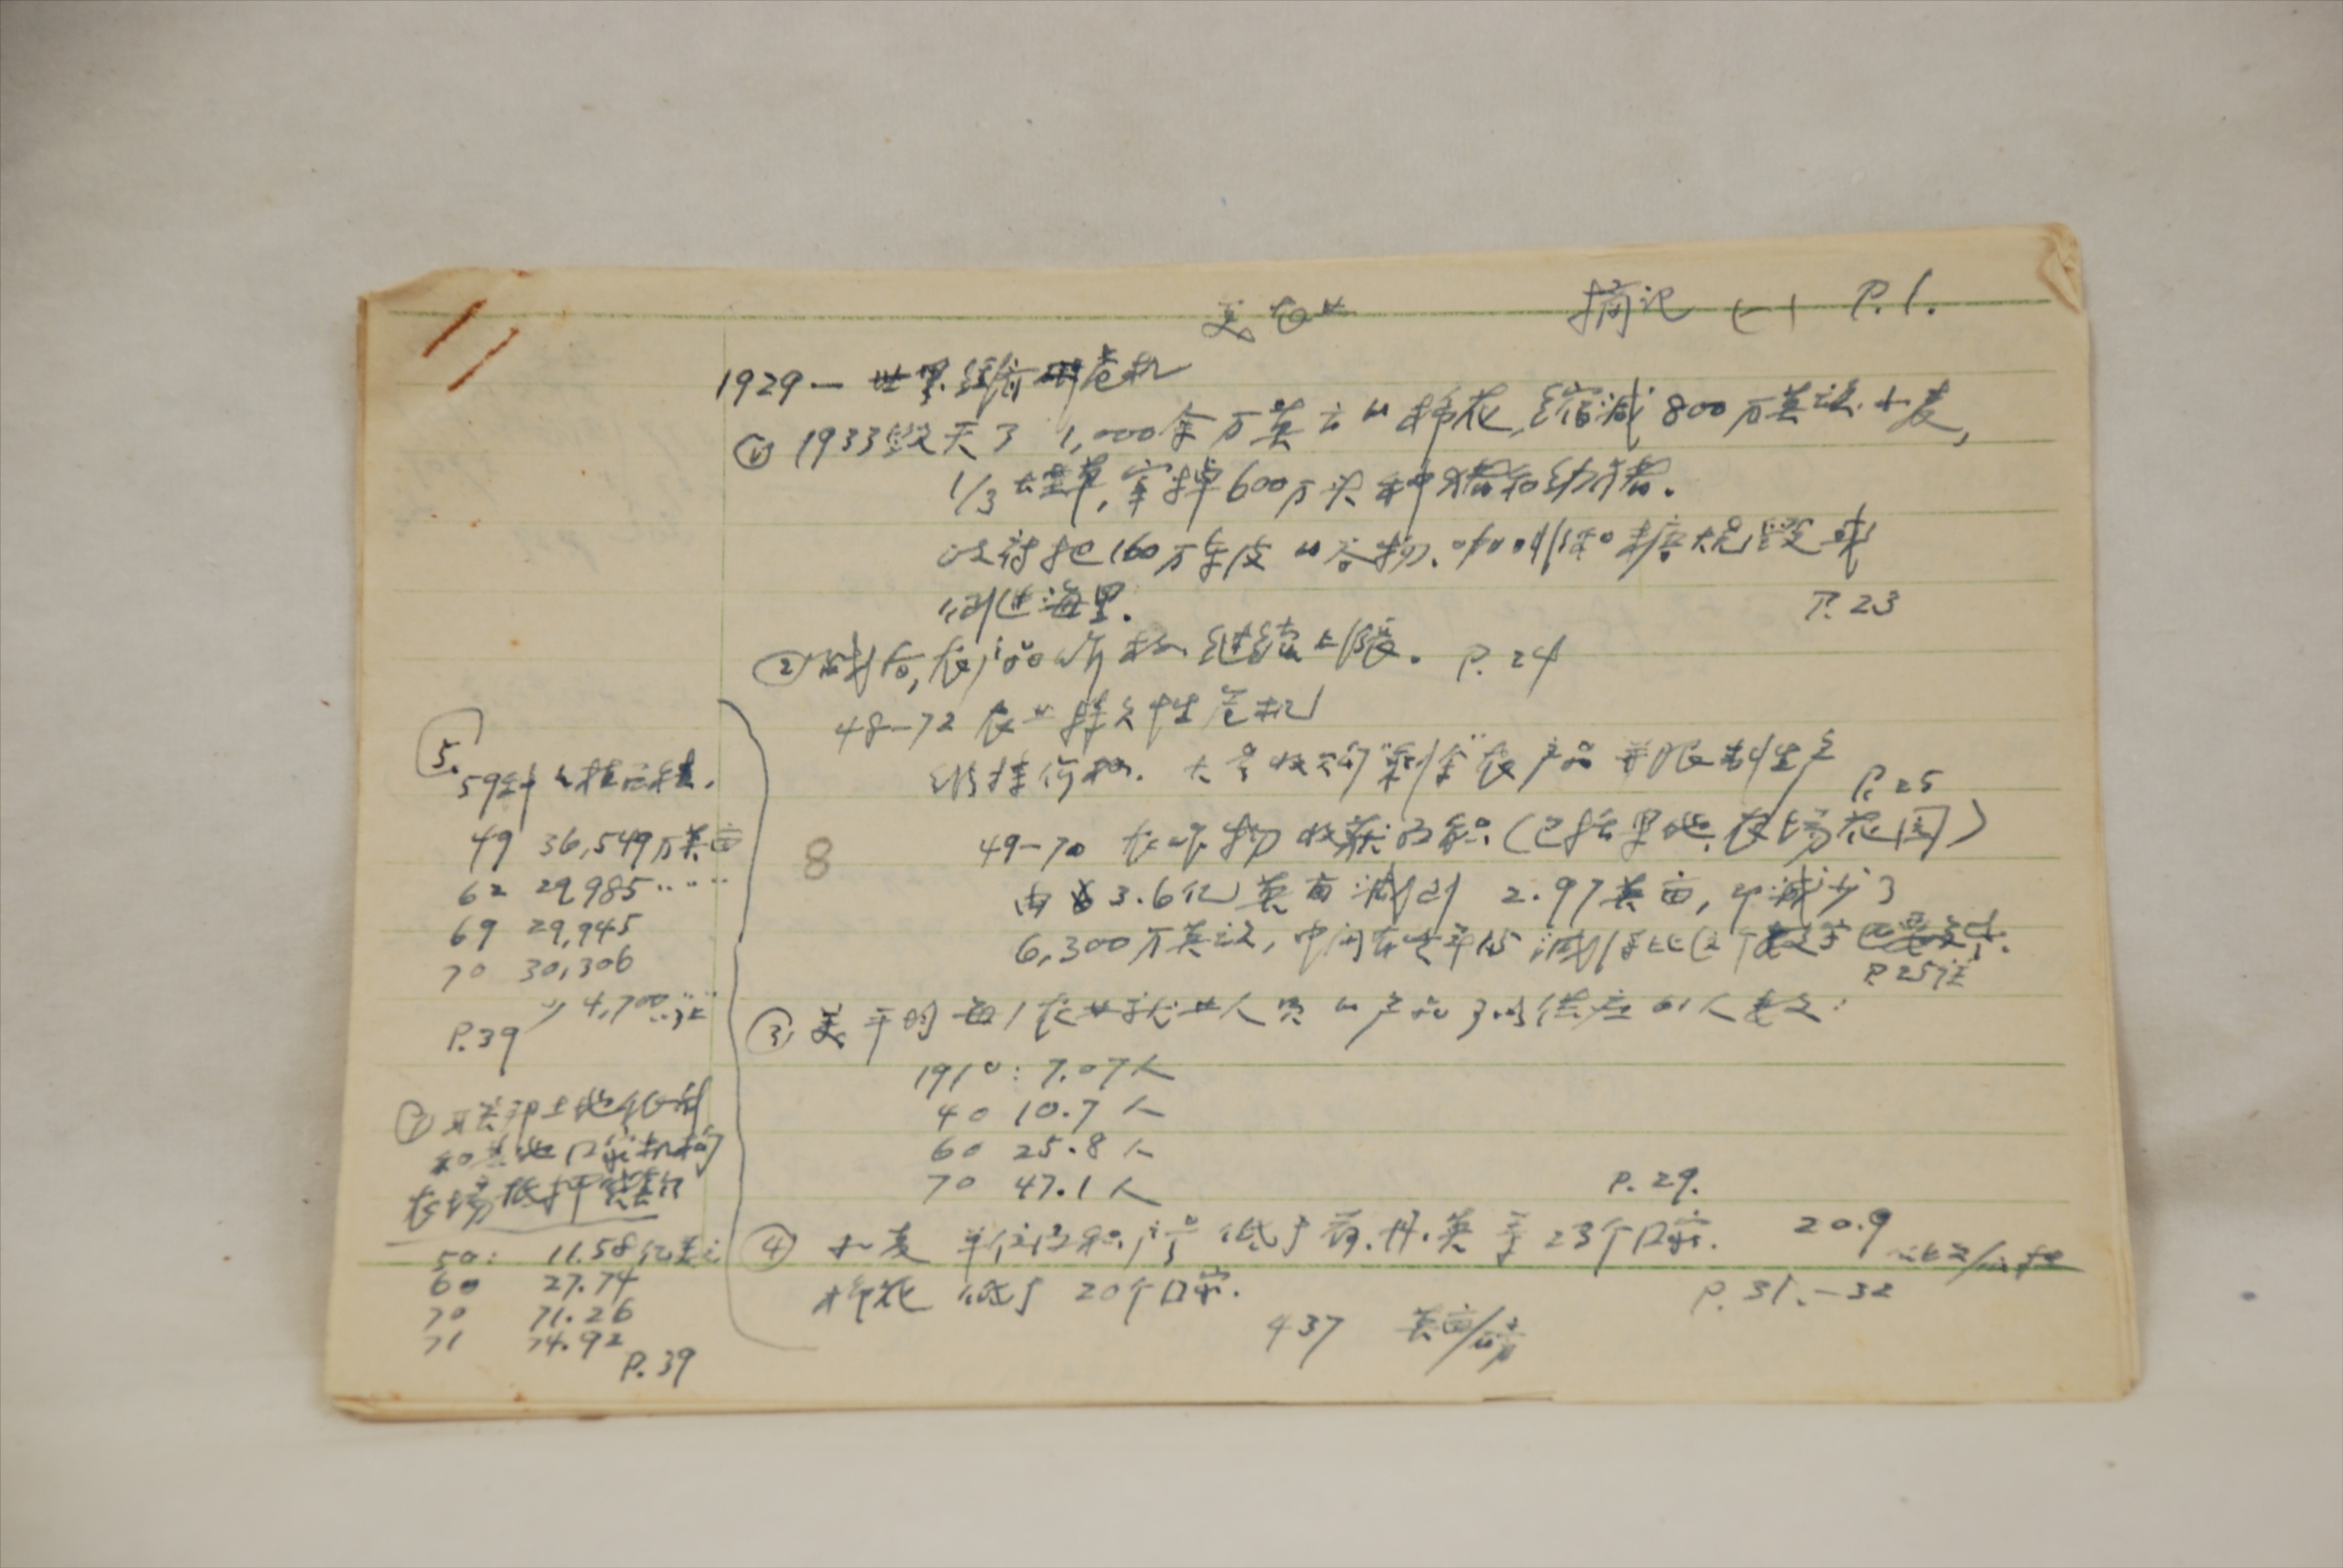 美农业
摘记 (一) P.1.
1929— 世界经济危机
① 1933毁灭了 1,000余万英亩的棉花,缩减800万英亩小麦,
1/3烟草,宰掉600万头种猪和幼猪.
政府把160万车皮的谷物、咖啡和糖烧毁或
倒进海里.
P.23
② 战后,农产品价格继续上涨. P.24
48-72 农业持久性危机
维持价格. 大量收购"剩余"农产品 并限制生产
P.25
8
49-70 农作物收获面积(包括果地、农场花园)
由3.6亿英亩减到 2.97英亩, 即减少了
6,300万英亩, 中间有些年份减得比这个数字
P.25注
③ 美平均每1农业就业人员的产品可以供应的人数:
1910: 7.07人
40 10.7人
60 25.8人
70 47.1人
P.29.
④ 小麦 单位面积产量 低于荷.丹.英等23个国家. 20.9
棉花 低于 20个国家.
P.31.-32
437 英亩/磅
5.
59种
49 36,549万英亩
62 29,985……
69 29,945
70 30,306
少 4,700
P.39
联邦土地银行
和其他国家机构
农场抵押贷款
50: 11.58亿美元
60 27.74
70 71.26
71 74.92
P.39